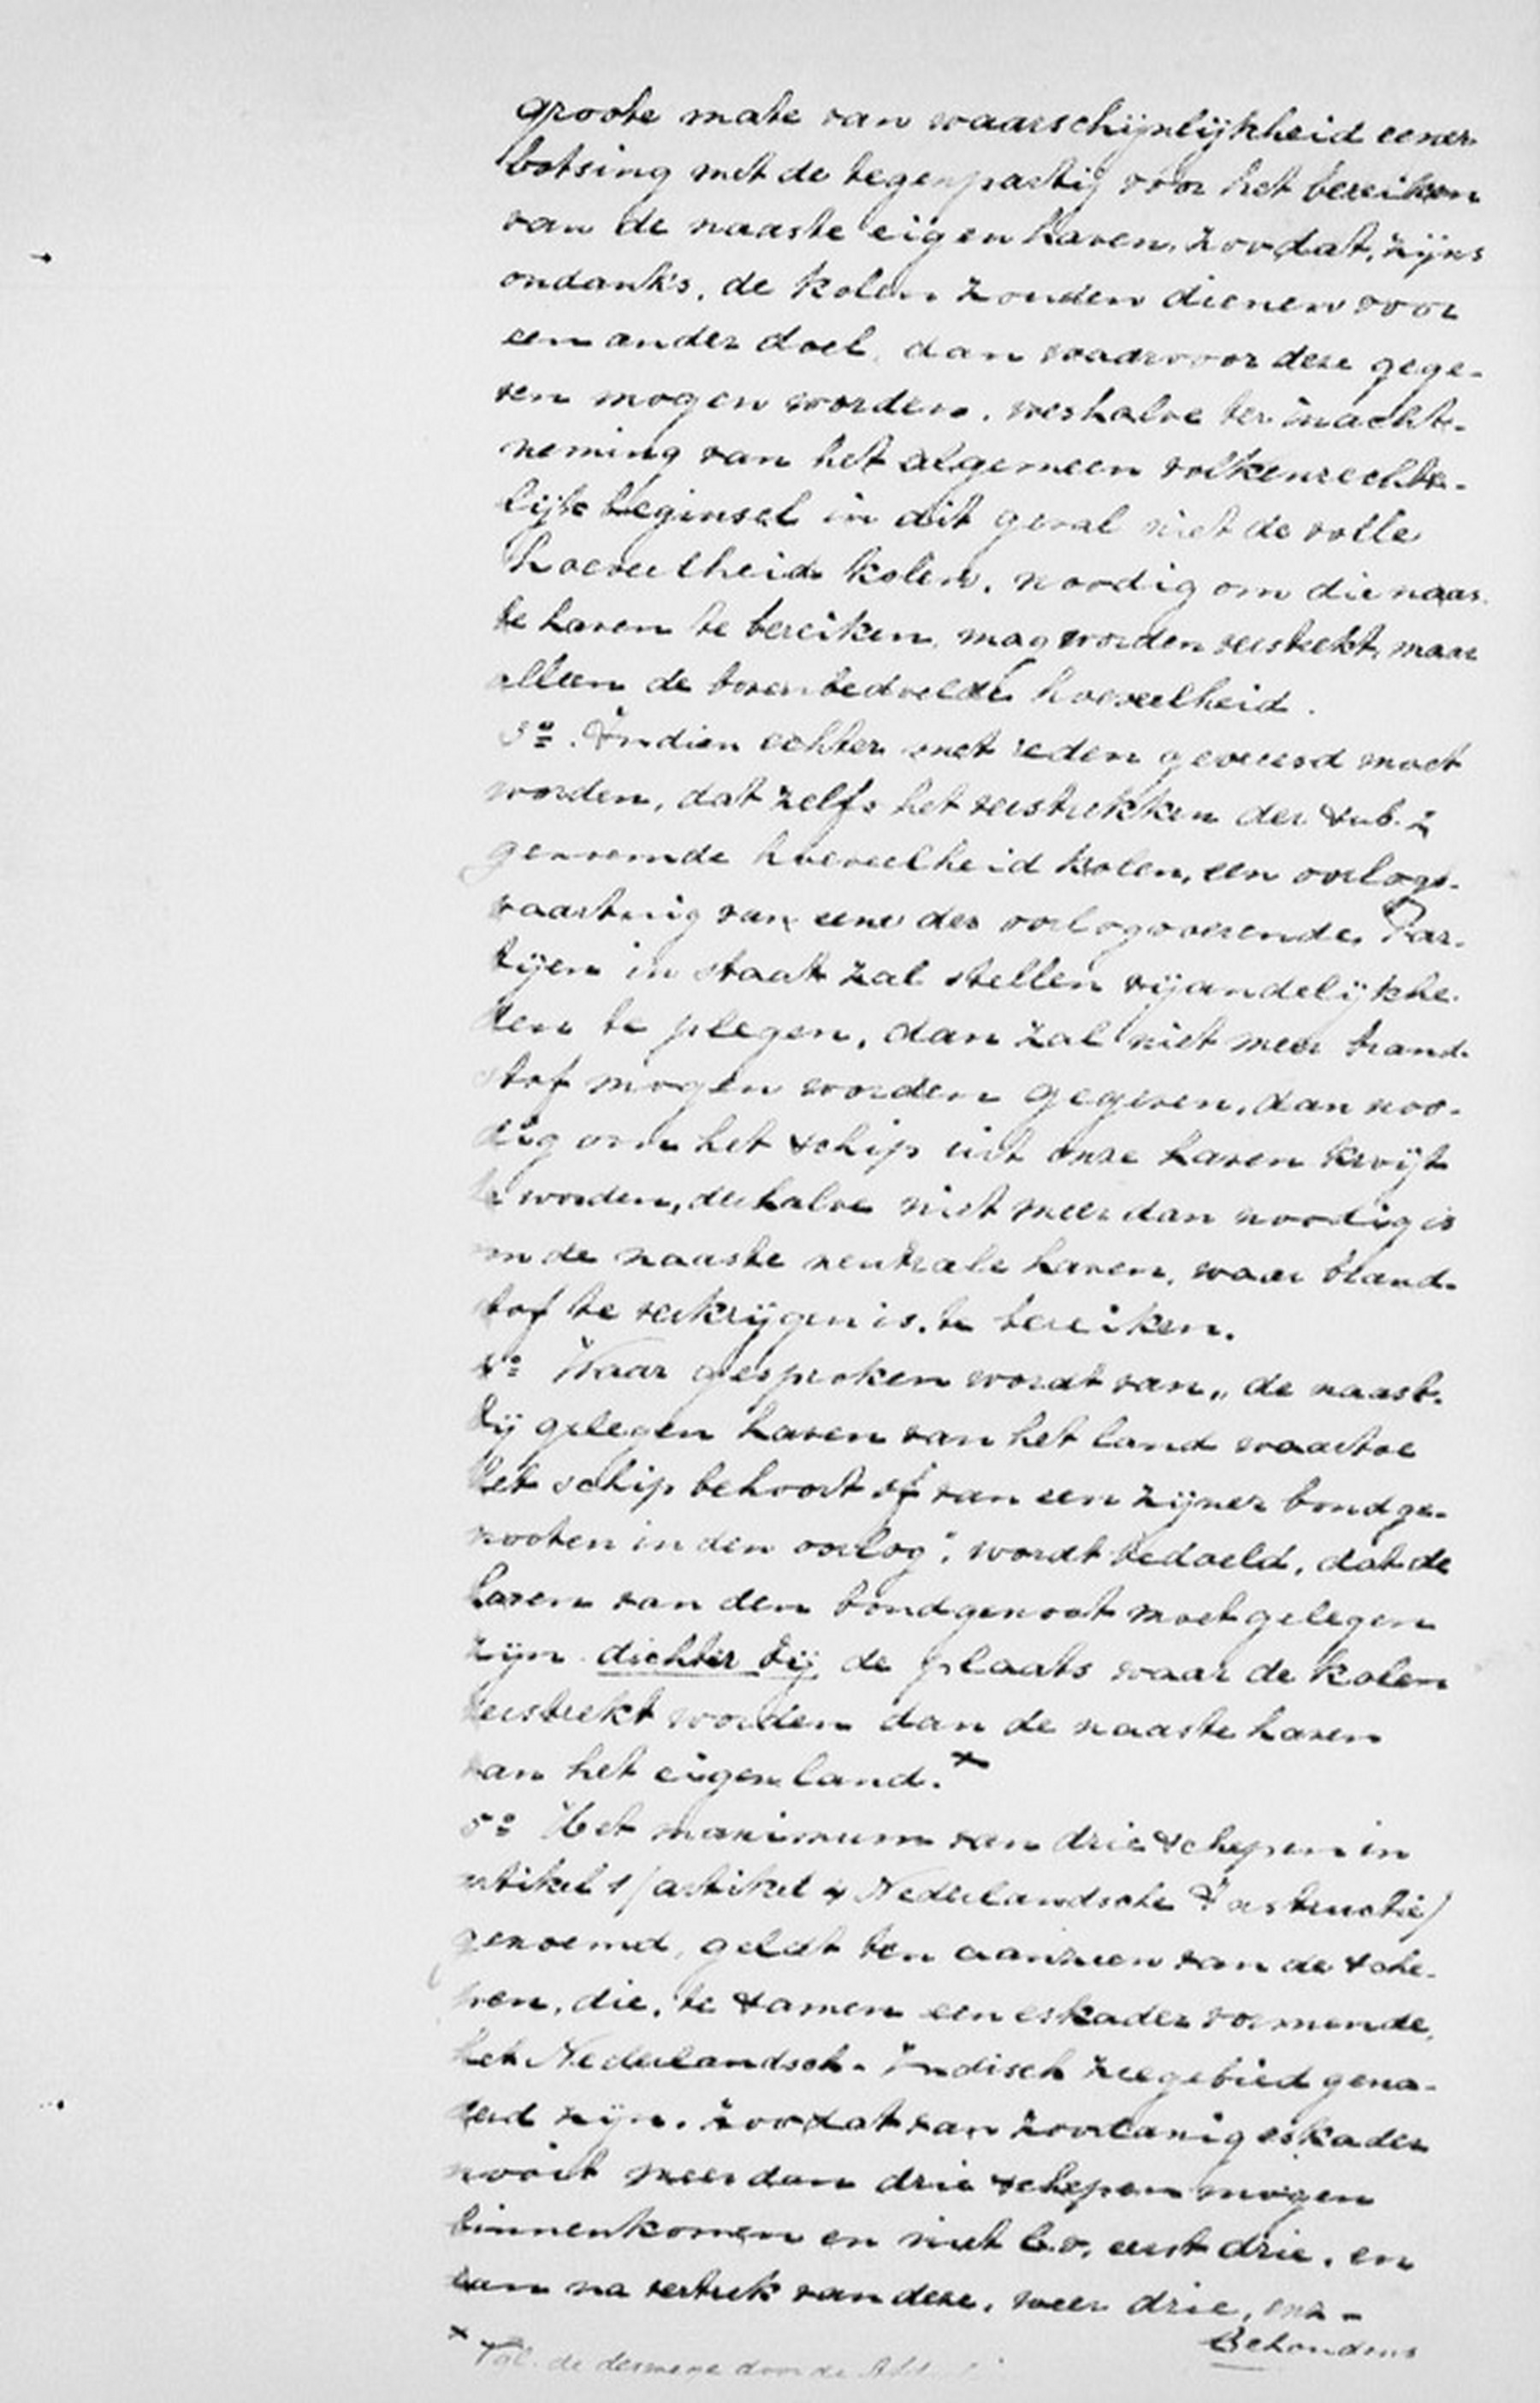 groote mate van waarschijnlijkheid eener
botsing met de tegenpartij vóór het bereiken
van de naaste eigen haven, zoodat, zijns
ondanks, de kolen zouden dienen voor
een ander doel, dan waarvoor deze gege-
ven mogen worden, weshalve ter inacht-
neming van het algemeen volkenrechte-
lijk beginsel in dit geval niet de volle
hoeveelheid kolen, noodig om die naas-
te haven te bereiken, mag worden verstrekt, maar
alleen de bovenbedoelde hoeveelheid.
3º. Indien echter met reden gevreesd moet
worden, dat zelfs het verstrekken der sub. 2
genoemde hoeveelheid kolen, een oorlogs-
vaartuig van eene der oorlogvoerende Par-
tijen in staat zal stellen vijandelijkhe-
den te plegen, dan zal niet meer brand-
stof mogen worden gegeven, dan noo-
dig om het schip uit onze haven kwijt
te worden, derhalve niet meer dan noodig is
om de naaste neutrale haven, waar brand-
stof te verkrijgen is, te bereiken.
4º Waar gesproken wordt van „de naast-
bij gelegen haven van het land waartoe
het schip behoort of van een zijner bondge-
nooten in den oorlog", wordt bedoeld, dat de
haven van den bondgenoot moet gelegen
zijn dichter bij de plaats waar de kolen
verstrekt worden dan de naaste haven
van het eigen land.ˣ
5º Het maximum van drie schepen in
artikel (artikel 4 Nederlandsche Instructie)
genoemd, geldt ten aanzien van de sche-
pen, die, te samen een eskader vormende,
het Nederlandsch-Indisch zeegebied gena-
derd zijn, zoodat van zoodanig eskader
nooit meer dan drie schepen mogen
binnenkomen en niet b.v. eerst drie, en
dan na vertrek van deze, weer drie, enz-
Behoudens
x de door de